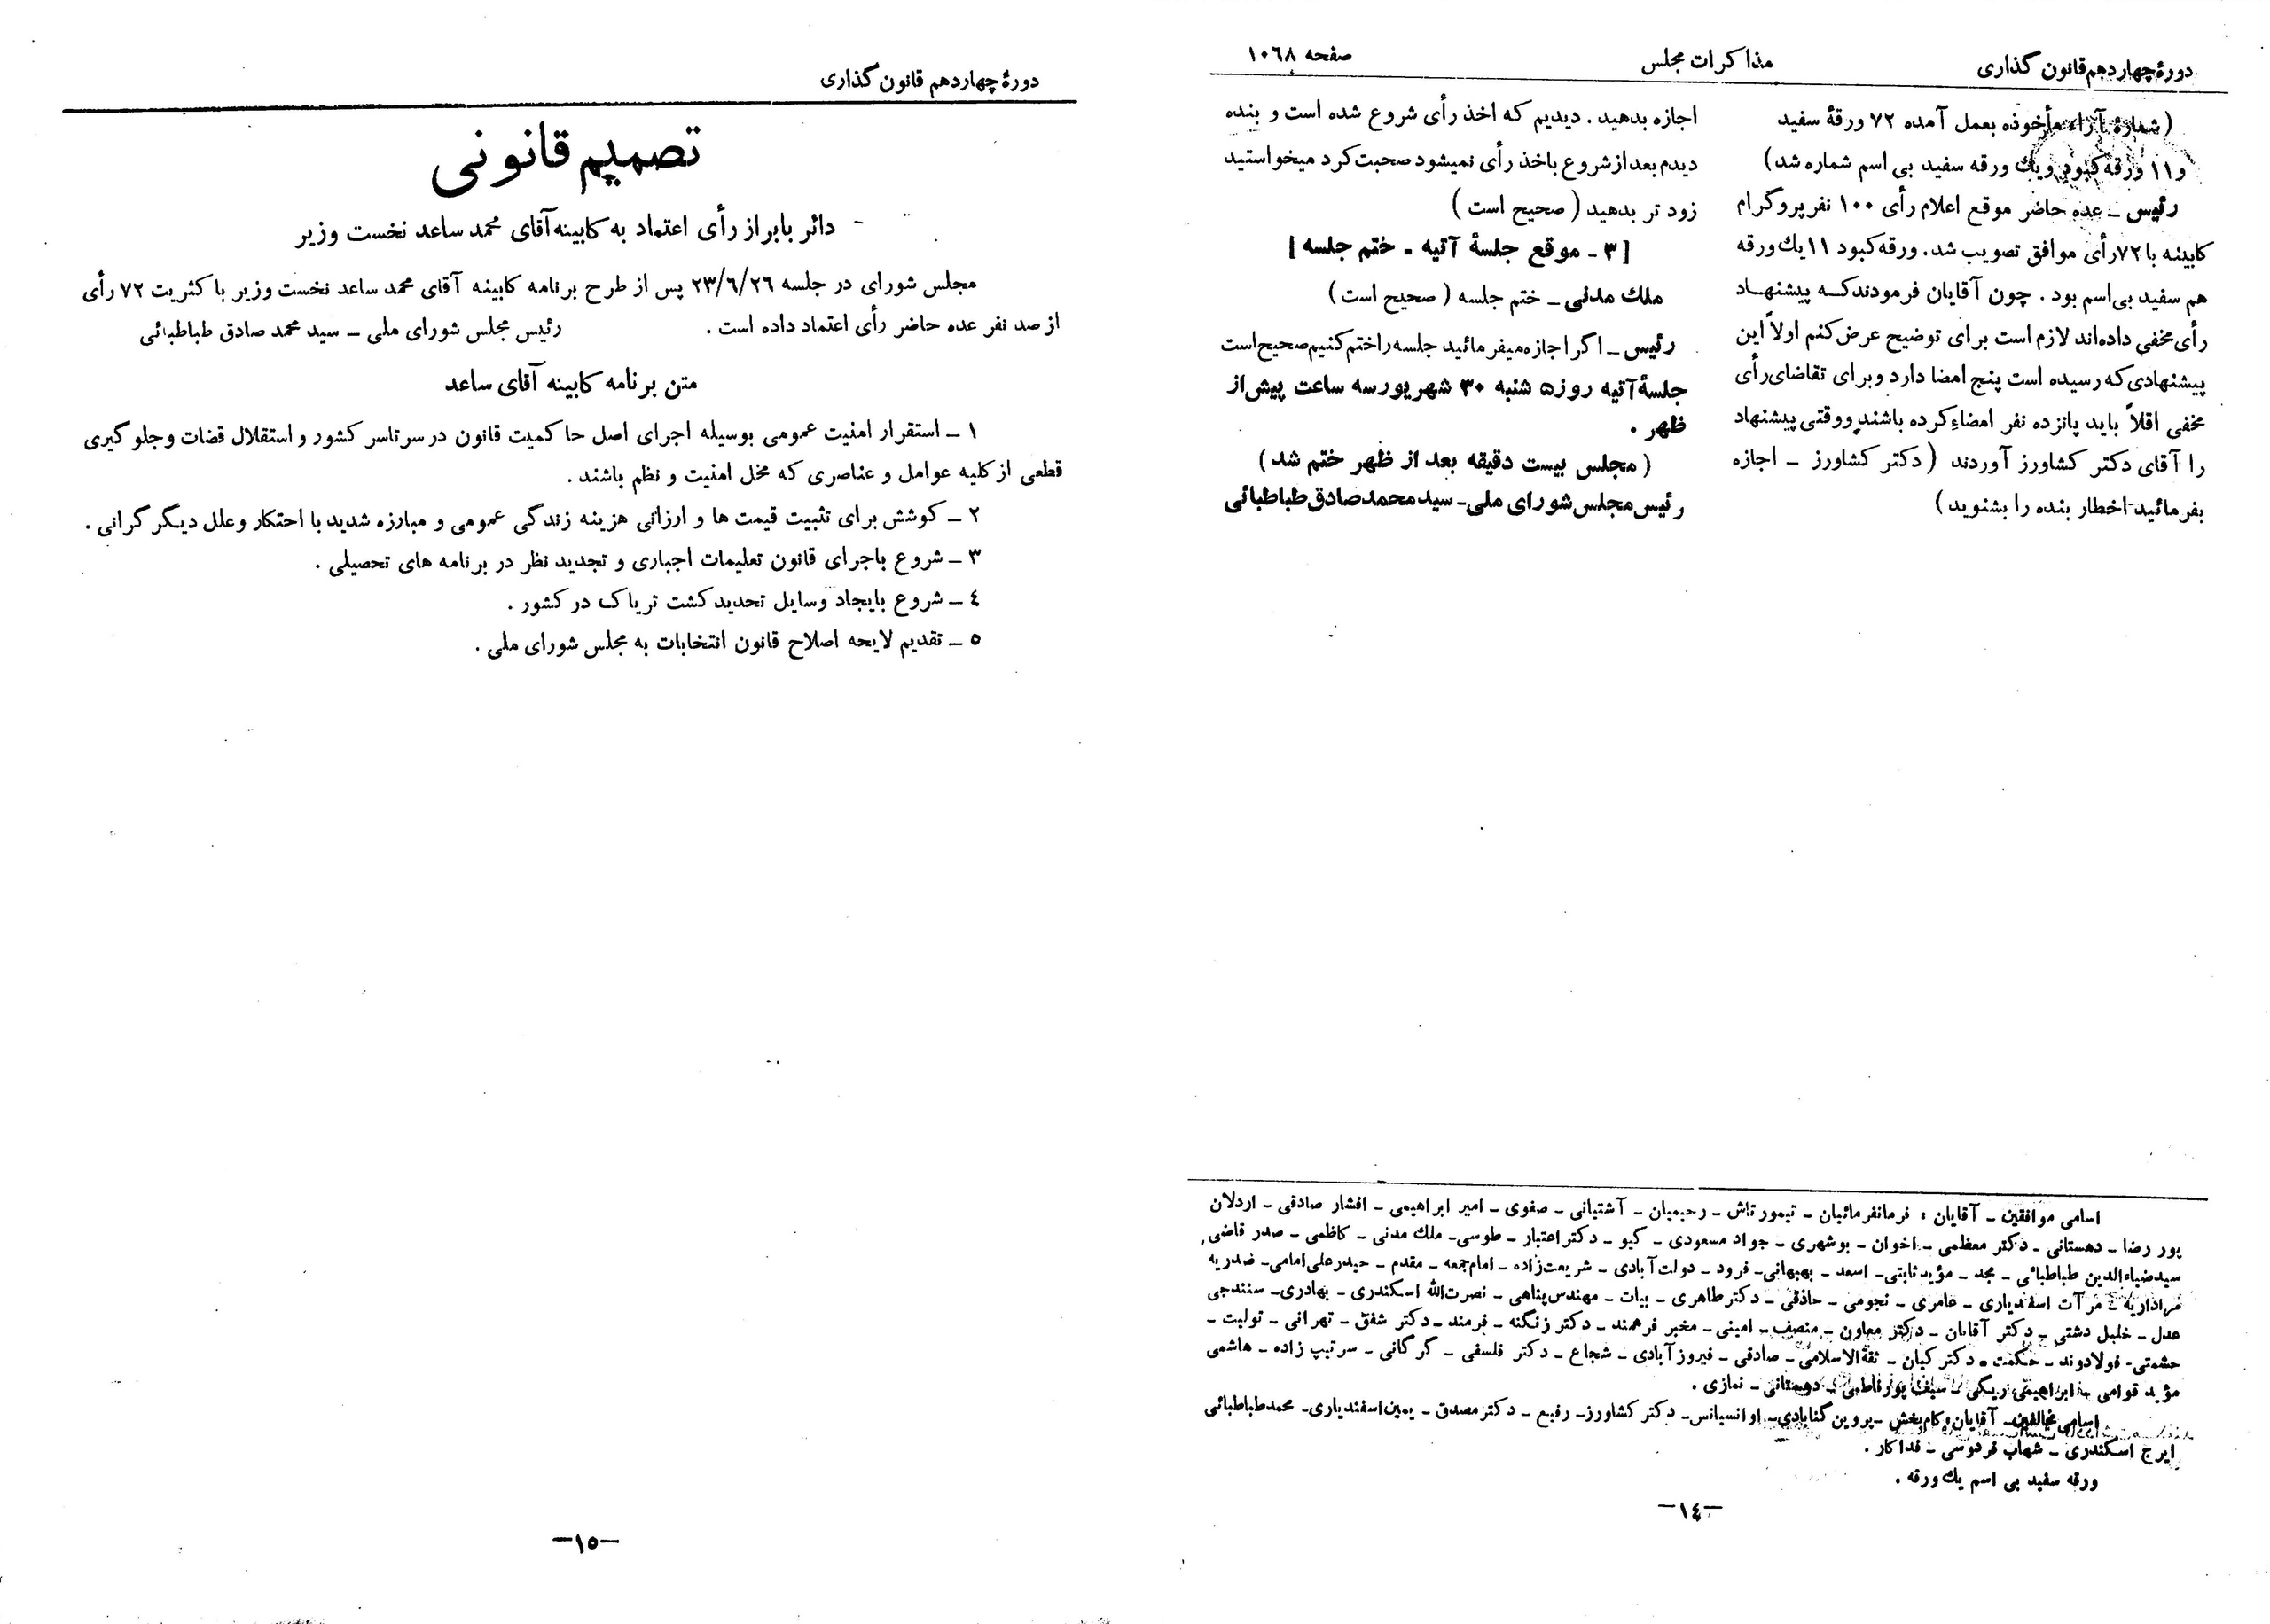 دورهٔ چهاردهم قانون گذاری
مذاکرات مجلس
صفحه ۱۰۶۸
(شمارهٔ آراء مأخوذه بعمل آمده ۷۲ ورقهٔ سفید
و ۱۱ ورقه کبود ویك ورقه سفید بی اسم شماره شد)
رئیس ـ عده حاضر موقع اعلام رأی ۱۰۰ نفر پروگرام
کابینه با ۷۲ رأی موافق تصویب شد. ورقه کبود ۱۱ یك ورقه
هم سفید بی‌اسم بود . چون آقایان فرمودند که پیشنهاد
رأی مخفی داده‌اند لازم است برای توضیح عرض کنم اولاً این
پیشنهادی که رسیده است پنج امضا دارد وبرای تقاضای رأی
مخفی اقلاً باید پانزده نفر امضاء کرده باشند ووقتی پیشنهاد
را آقای دکتر کشاورز آوردند (دکتر کشاورز ـ اجازه
بفرمائید اخطار بنده را بشنوید)
اجازه بدهید . دیدیم که اخذ رأی شروع شده است و بنده
دیدم بعد از شروع باخذ رأی نمیشود صحبت کرد میخواستید
زود تر بدهید (صحیح است)
[۳ ـ موقع جلسهٔ آتیه ـ ختم جلسه]
ملك مدنی ـ ختم جلسه (صحیح است)
رئیس ـ اگر اجازه میفرمائید جلسه را ختم کنیم صحیح است
جلسهٔ آتیه روز ۵ شنبه ۳۰ شهریور سه ساعت پیش از
ظهر .
(مجلس بیست دقیقه بعد از ظهر ختم شد)
رئیس مجلس شورای ملی ـ سید محمد صادق طباطبائی
اسامی موافقین ـ آقایان : فرمانفرمائیان ـ تیمورتاش ـ رحیمیان ـ آشتیانی ـ صفوی ـ امیر ابراهیمی ـ افشار صادقی ـ اردلان
پور رضا ـ دهستانی ـ دکتر معظمی ـ اخوان ـ بوشهری ـ جواد مسعودی ـ گیو ـ دکتر اعتبار ـ طوسی ـ ملك مدنی ـ کاظمی ـ صدر قاضی
سید ضیاءالدین طباطبائی ـ مجد ـ مؤید ثابتی ـ اسعد ـ بهبهانی ـ فرود ـ دولت آبادی ـ شریعت‌زاده ـ امام‌جمعه ـ مقدم ـ حیدر علی امامی ـ صدریه
مرآت اسفندیاری ـ عامری ـ نجومی ـ حاذقی ـ دکتر طاهری ـ بیات ـ مهندس پناهی ـ نصرت‌الله اسکندری ـ بهادری ـ سنندجی
عدل ـ خلیل دشتی ـ دکتر آقایان ـ دکتر معاون ـ منصف ـ امینی ـ مخبر فرهمند ـ دکتر زنگنه ـ فرمند ـ دکتر شفق ـ تهرانی ـ تولیت ـ
حشمتی ـ فولادوند ـ حکمت ـ دکتر کیان ـ ثقةالاسلامی ـ صادقی ـ فیروزآبادی ـ شجاع ـ دکتر فلسفی ـ گرگانی ـ سرتیپ زاده ـ هاشمی
مؤید قوامی ـ ابراهیمی ریگی ـ سیف پور فاطمی ـ دهستانی ـ نمازی .
اسامی مخالفین ـ آقایان : کام‌بخش ـ پروین گنابادی ـ اوانسیانس ـ دکتر کشاورز ـ رفیع ـ دکتر مصدق ـ یمین اسفندیاری ـ محمد طباطبائی
ایرج اسکندری ـ شهاب فردوسی ـ فداکار .
ورقه سفید بی اسم یك ورقه .
ـ۱٤ـ
دورهٔ چهاردهم قانون گذاری
تصمیم قانونی
دائر بابراز رأی اعتماد به کابینه آقای محمد ساعد نخست وزیر
مجلس شورای در جلسه ۲۳/۶/۲۶ پس از طرح برنامه کابینه آقای محمد ساعد نخست وزیر با کثریت ۷۲ رأی
از صد نفر عده حاضر رأی اعتماد داده است .
رئیس مجلس شورای ملی ـ سید محمد صادق طباطبائی
متن برنامه کابینه آقای ساعد
۱ ـ استقرار امنیت عمومی بوسیله اجرای اصل حاکمیت قانون در سرتاسر کشور و استقلال قضات و جلوگیری
قطعی از کلیه عوامل و عناصری که مخل امنیت و نظم باشند .
۲ ـ کوشش برای تثبیت قیمت ها و ارزانی هزینه زندگی عمومی و مبارزه شدید با احتکار و علل دیگر گرانی .
۳ ـ شروع باجرای قانون تعلیمات اجباری و تجدید نظر در برنامه های تحصیلی .
٤ ـ شروع بایجاد وسایل تحدید کشت تریاک در کشور .
۵ ـ تقدیم لایحه اصلاح قانون انتخابات به مجلس شورای ملی .
ـ۱۵ـ